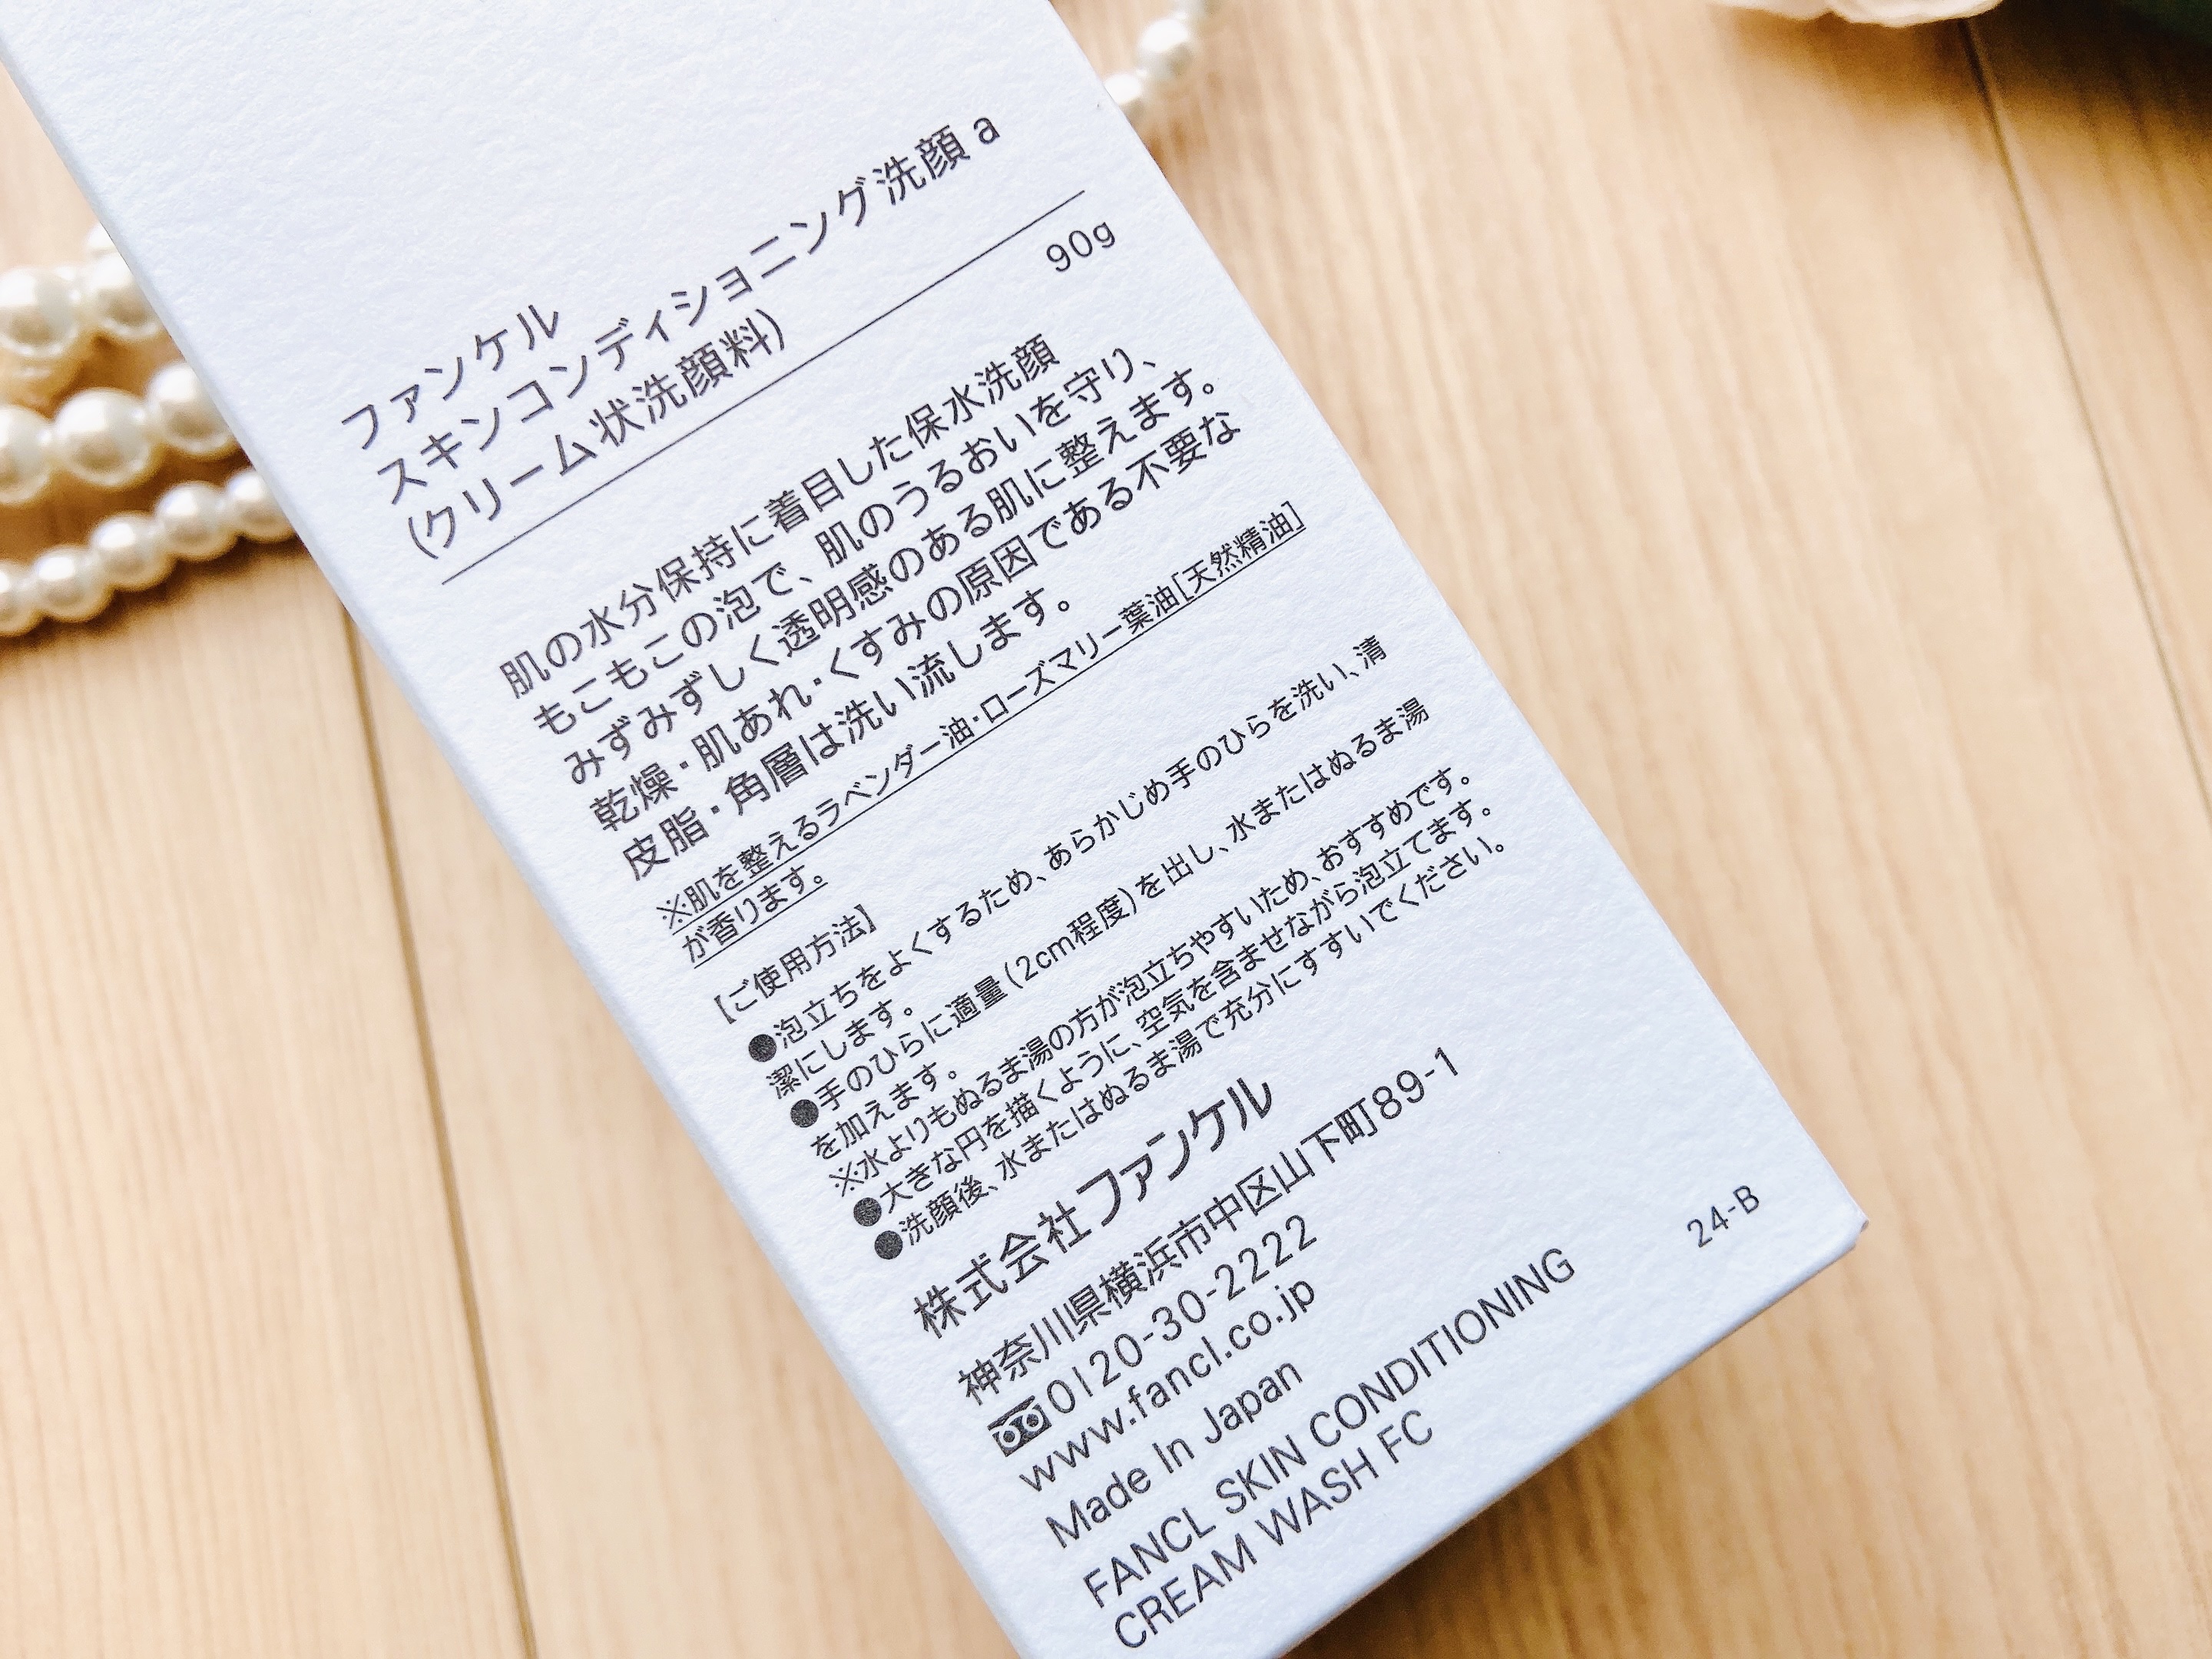 ファンケル
スキンコンディショニング洗顔 a
(クリーム状洗顔料)
90g
肌の水分保持に着目した保水洗顔
もこもこの泡で、肌のうるおいを守り、
みずみずしく透明感のある肌に整えます。
乾燥・肌あれ・くすみの原因である不要な
皮脂・角層は洗い流します。
※肌を整えるラベンダー油・ローズマリー葉油[天然精油]
が香ります。
【ご使用方法】
●泡立ちをよくするため、あらかじめ手のひらを洗い、清
潔にします。
●手のひらに適量(2cm程度)を出し、水またはぬるま湯
を加えます。
※水よりもぬるま湯の方が泡立ちやすいため、おすすめです。
●大きな円を描くように、空気を含ませながら泡立てます。
●洗顔後、水またはぬるま湯で充分にすすいでください。
株式会社ファンケル
神奈川県横浜市中区山下町89-1
0120-30-2222
www.fancl.co.jp
Made In Japan
24-B
FANCL SKIN CONDITIONING
CREAM WASH FC